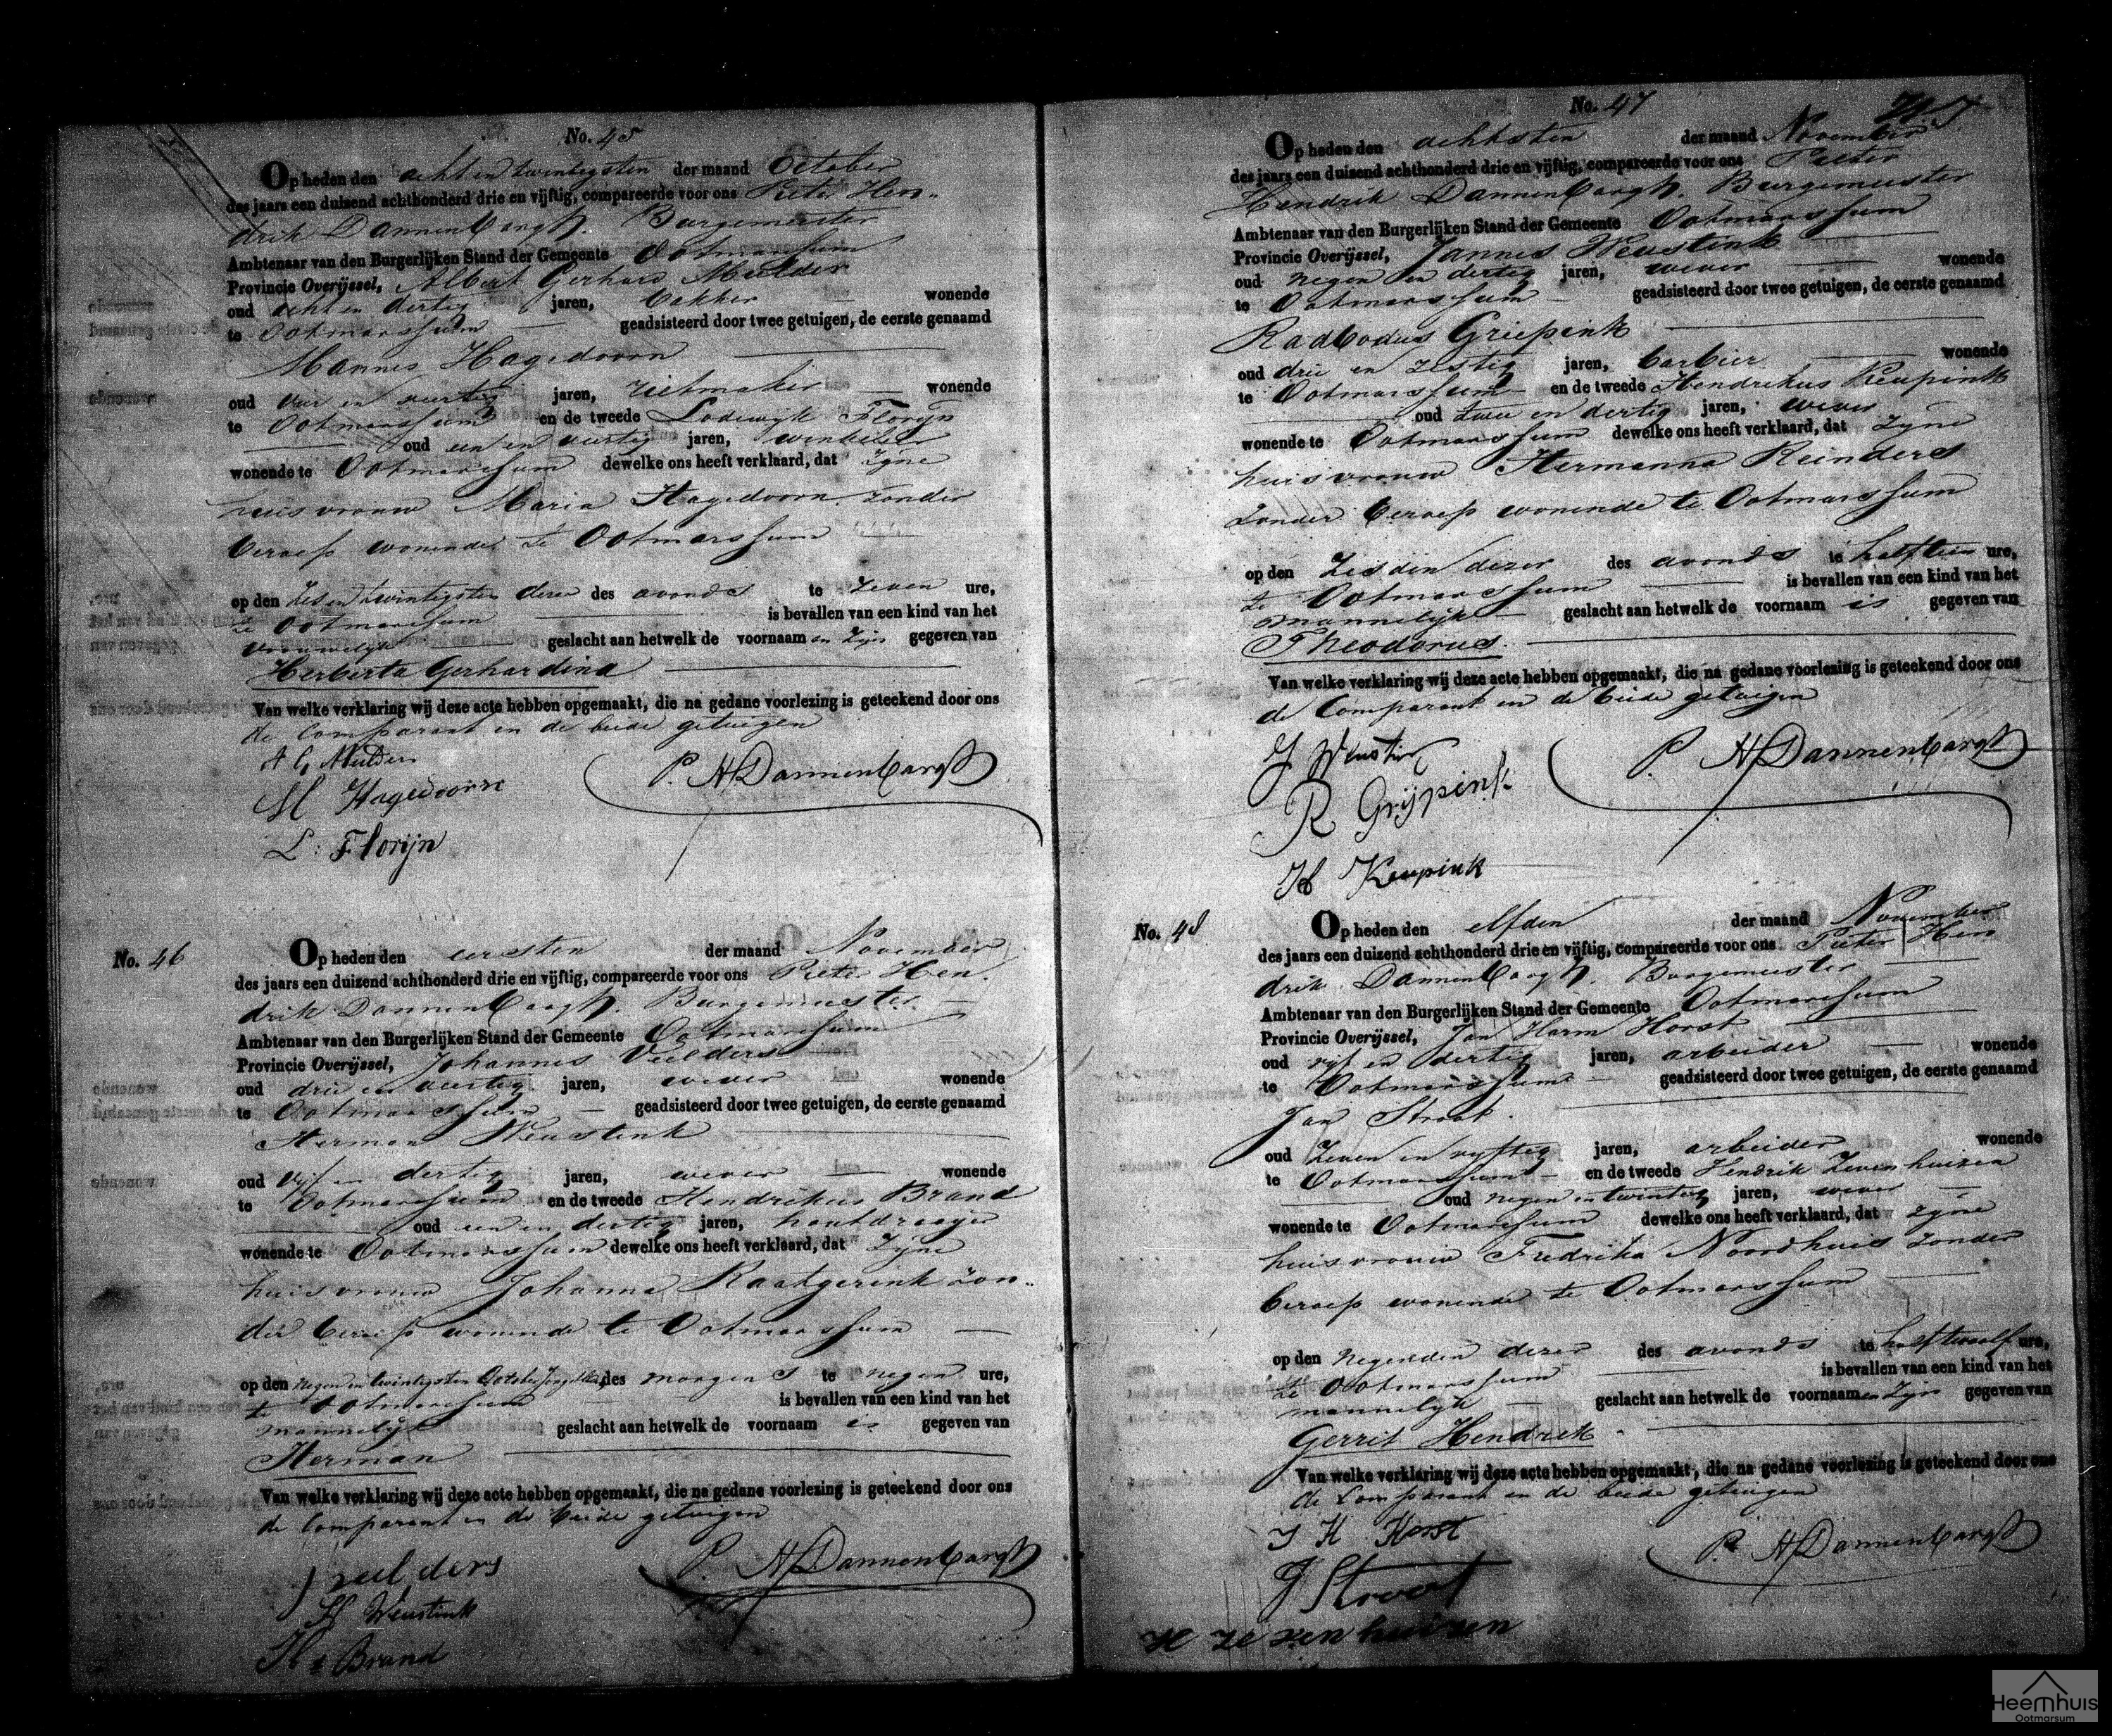 No. 45
Op heden den acht en twintigsten der maand October
des jaars een duizend achthonderd drie en vijftig, compareerde voor ons Pieter Hen-
drik Dannenbargh. Burgemeester
Ambtenaar van den Burgerlijken Stand der Gemeente Ootmarssum
Provincie Overijssel, Albert Gerhard Mulder
oud acht en dertig jaren, bakker wonende
te Ootmarssum geadsisteerd door twee getuigen, de eerste genaamd
Mannes Hagedoorn
oud vier en veertig jaren, rietmaker wonende
te Ootmarssum en de tweede Lodewyk Floryn
oud een en veertig jaren, winkelier
wonende te Ootmarssum dewelke ons heeft verklaard, dat zyne
huisvrouw Maria Hagedoorn zonder
beroep wonende te Ootmarssum
op den zes en twintigsten dezer des avonds te zeven ure,
te Ootmarssum is bevallen van een kind van het
vrouwelyk geslacht aan hetwelk de voornaam en zyn gegeven van
Herberta Gerhardina
Van welke verklaring wij deze acte hebben opgemaakt, die na gedane voorlezing is geteekend door ons
de Comparant en de beide getuigen
A G Mulder
P. H Dannenbargh
M Hagedoorn
L: Florijn
No. 46
Op heden den eersten der maand November
des jaars een duizend achthonderd drie en vijftig, compareerde voor ons Pieter Hen-
drik Dannenbargh. Burgemeester
Ambtenaar van den Burgerlijken Stand der Gemeente Ootmarssum
Provincie Overijssel, Johannes Veelders
oud drie en veertig jaren, wever wonende
te Ootmarssum geadsisteerd door twee getuigen, de eerste genaamd
Herman Weustink
oud vijf en dertig jaren, wever wonende
te Ootmarssum en de tweede Hendrikus Brand
oud een en dertig jaren, houtdraayer
wonende te Ootmarssum dewelke ons heeft verklaard, dat zyne
huisvrouw Johanna Raatgerink zon-
der beroep wonende te Ootmarssum
op den negen en twintigsten October jongstleden des morgens te negen ure,
te Ootmarssum is bevallen van een kind van het
mannelyk geslacht aan hetwelk de voornaam is gegeven van
Herman
Van welke verklaring wij deze acte hebben opgemaakt, die na gedane voorlezing is geteekend door ons
de Comparant en de beide getuigen
J veelders
P. H Dannenbargh
H Weustink
H = Brand
No. 47
Op heden den achtsten der maand November
des jaars een duizend achthonderd drie en vijftig, compareerde voor ons Pieter
Hendrik Dannenbargh. Burgemeester
Ambtenaar van den Burgerlijken Stand der Gemeente Ootmarssum
Provincie Overijssel, Jannes Weustink
oud negen en dertig jaren, wever wonende
te Ootmarssum geadsisteerd door twee getuigen, de eerste genaamd
Radbodus Griepink
oud drie en zestig jaren, barbier wonende
te Ootmarssum en de tweede Hendrikus Keupink
oud twee en dertig jaren, wever
wonende te Ootmarssum dewelke ons heeft verklaard, dat zyne
huisvrouw Hermanna Reinders
zonder beroep wonende te Ootmarssum
op den zesden dezer des avonds te half tien ure,
te Ootmarssum is bevallen van een kind van het
mannelyk geslacht aan hetwelk de voornaam is gegeven van
Theodorus.
Van welke verklaring wij deze acte hebben opgemaakt, die na gedane voorlezing is geteekend door ons
de Comparant en de beide getuigen
J Weustink
P. H Dannenbargh
R Grijpink
H Keupink
No. 48
Op heden den elfden der maand November
des jaars een duizend achthonderd drie en vijftig, compareerde voor ons Pieter Hen
drik Dannenbargh. Burgemeester
Ambtenaar van den Burgerlijken Stand der Gemeente Ootmarssum
Provincie Overijssel, Jan Harm Horst
oud vijf en dertig jaren, arbeider wonende
te Ootmarssum geadsisteerd door twee getuigen, de eerste genaamd
Jan Stroot.
oud zeven en vyftig jaren, arbeider wonende
te Ootmarssum en de tweede Hendrik Zevenhuizen
oud negen en twintig jaren, wever
wonende te Ootmarssum dewelke ons heeft verklaard, dat zyne
huisvrouw Fredrika Noordhuis zonder
beroep wonende te Ootmarssum
op den negenden dezer des avonds te half twaalf ure,
te Ootmarssum is bevallen van een kind van het
mannelyk geslacht aan hetwelk de voornaam en zyn gegeven van
Gerrit Hendrik
Van welke verklaring wij deze acte hebben opgemaakt, die na gedane voorlezing is geteekend door ons
de Comparant en de beide getuigen
J H Horst
P. H Dannenbargh
J Stroot
H Zevenhuizen
Heemhuis
Ootmarsum